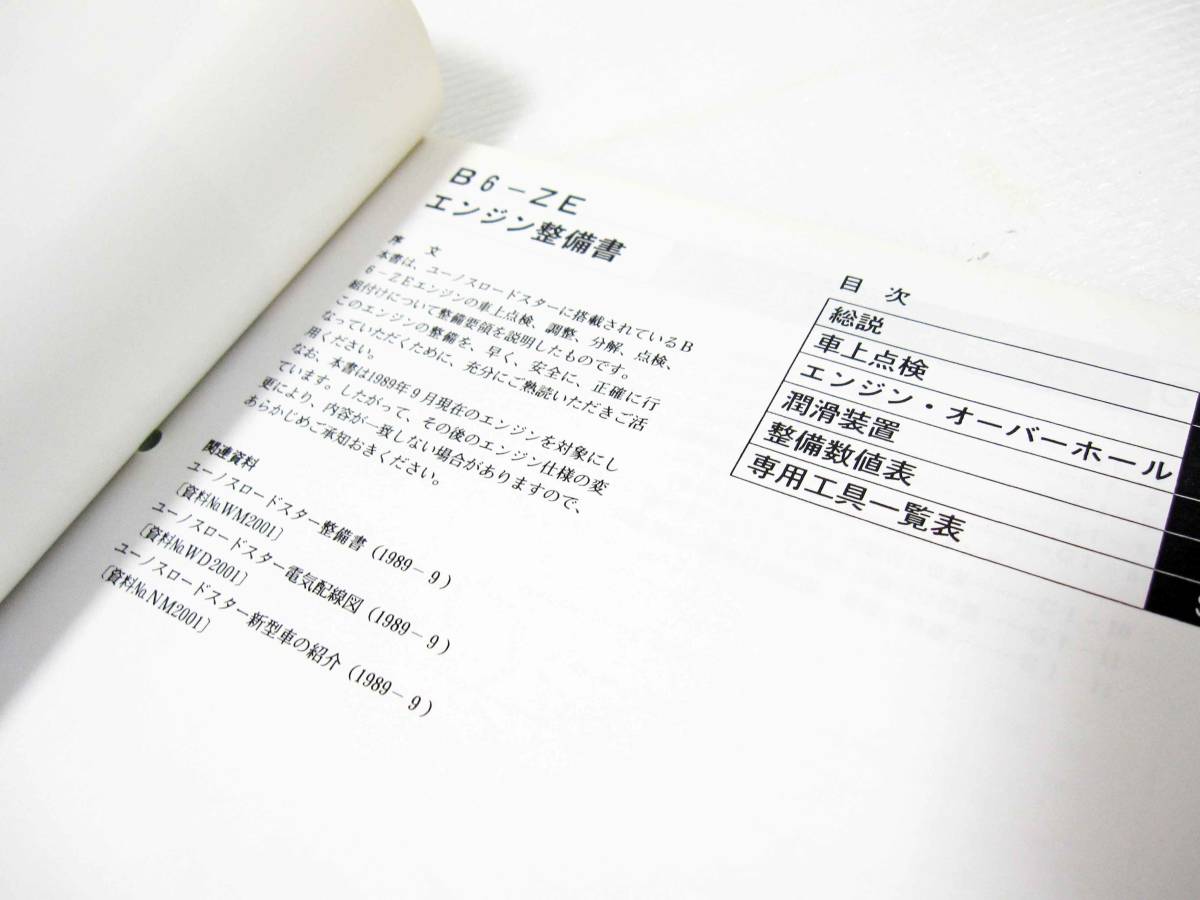 B6-ZE
エンジン整備書
序 文
本書は、ユーノスロードスターに搭載されているB
6-ZEエンジンの車上点検、調整、分解、点検、
組付けについて整備要領を説明したものです。
このエンジンの整備を、早く、安全に、正確に行
なっていただくために、充分にご熟読いただきご活
用ください。
なお、本書は1989年9月現在のエンジンを対象にし
ています。したがって、その後のエンジン仕様の変
更により、内容が一致しない場合がありますので、
あらかじめご承知おきください。
関連資料
ユーノスロードスター整備書(1989-9)
〔資料No.WM2001〕
ユーノスロードスター電気配線図(1989-9)
〔資料No.WD2001〕
ユーノスロードスター新型車の紹介(1989-9)
〔資料No.NM2001〕
目 次
総説
車上点検
エンジン・オーバーホール
潤滑装置
整備数値表
専用工具一覧表